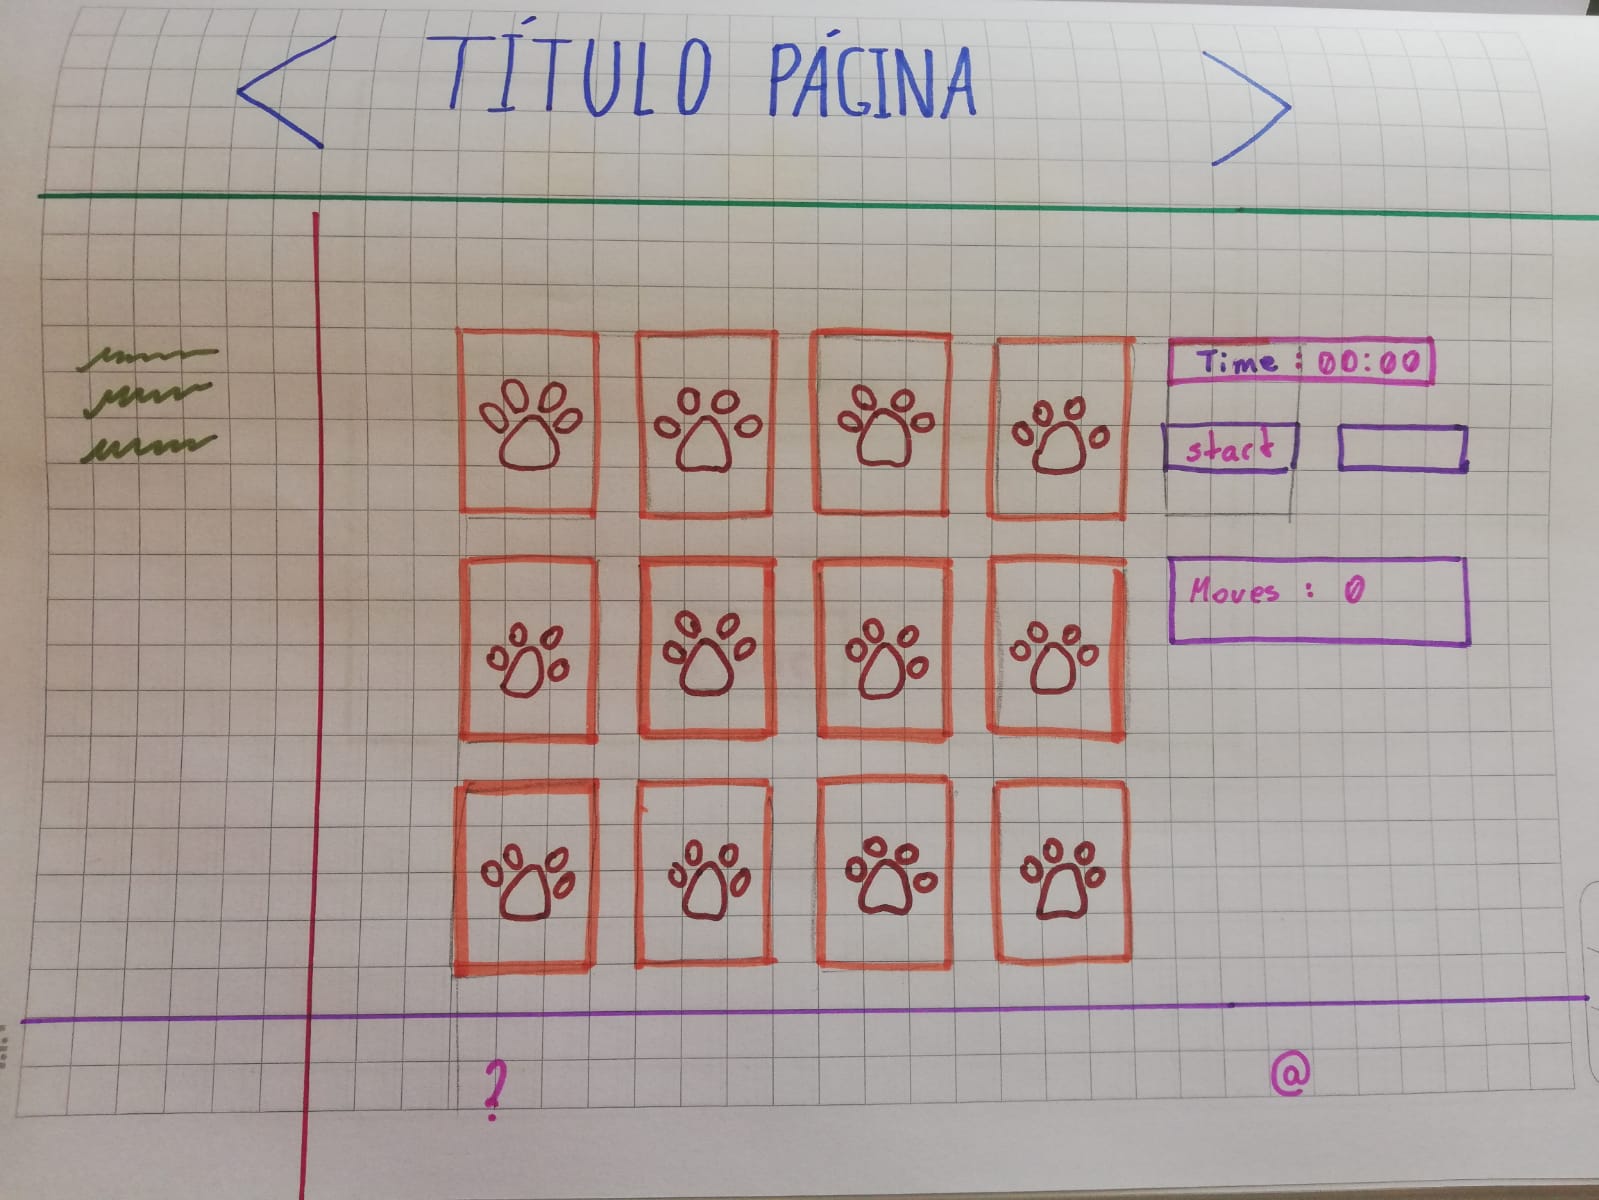 < TÍTULO PÁGINA >
Time : 00:00
start
Moves : 0
?
@